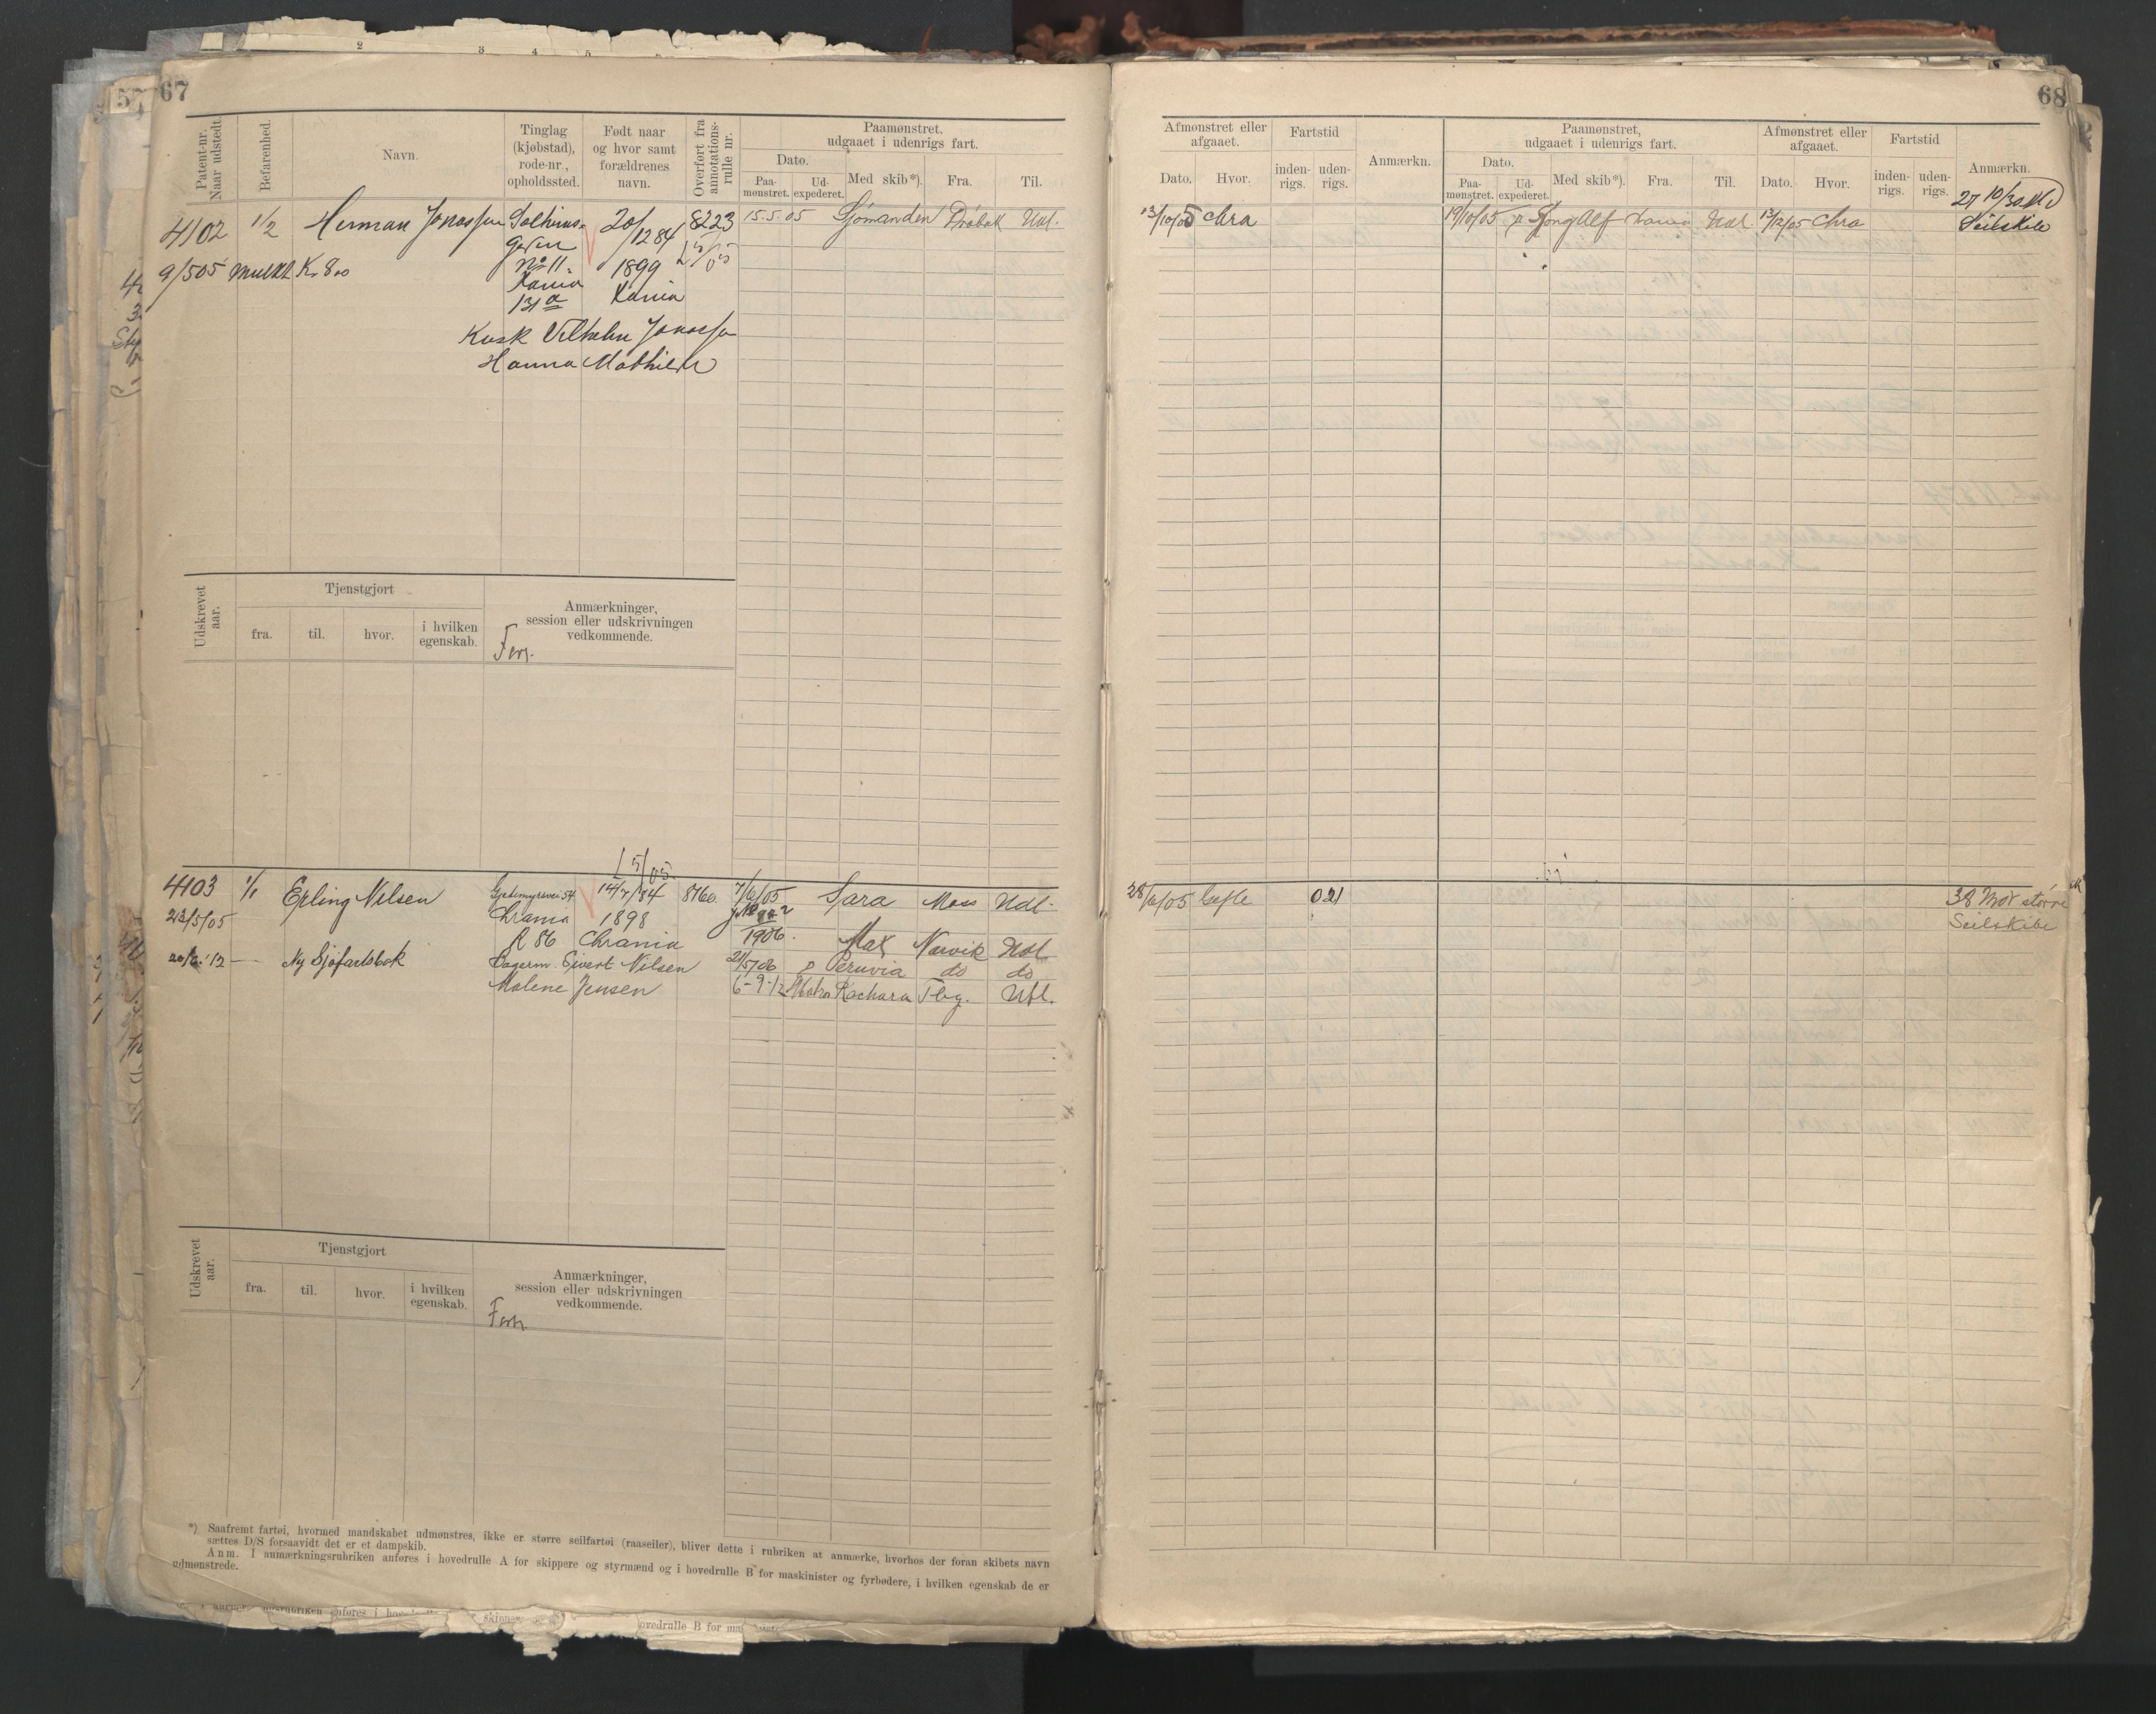 67
Patent-nr. Naar udstedt.
Befarenhed.
Navn.
Tinglag (kjøbstad), rode-nr., opholdssted.
Født naar og hvor samt forældrenes navn.
Overført fra annotations-rulle nr.
Paamønstret, udgaaet i udenrigs fart.
Dato.
Paa-mønstret.
Ud-expederet.
Med skib*).
Fra.
Til.
4102 1/2 Herman Jonassen 20/12 84 8223 15.5.05 Sjömanden Dröbak Udl.
9/505 mulkt Kr 8.00 No 11. 1899
Kania Kania
131 a
Kusk Vilhelm Jonassen
Hanna Mathilde
Udskrevet aar.
Tjenstgjort
fra.
til.
hvor.
i hvilken egenskab.
Anmærkninger, session eller udskrivningen vedkommende.
4103 1/1 Erling Nilsen 14/7/84 8760 7/6/05 Sara Moss Udl.
23/5/05 Chrania 1898
R 86 Chrania 1906. Max Narvik Udl
Ny Sjöfartsbok Sivert Nilsen 21/5/06 Peruvia do do
Malene Jensen 6-9-12 Fbg. Udl.
Udskrevet aar.
Tjenstgjort
fra.
til.
hvor.
i hvilken egenskab.
Anmærkninger, session eller udskrivningen vedkommende.
*) Saafremt fartøi, hvormed mandskabet udmønstres, ikke er større seilfartøi (raaseiler), bliver dette i rubriken at anmærke, hvorhos der foran skibets navn
sættes D/S forsaavidt det er et dampskib.
Anm. I anmærkningsrubriken anføres i hovedrulle A for skippere og styrmænd og i hovedrulle B for maskinister og fyrbødere, i hvilken egenskab de er
udmønstrede.
68
Afmønstret eller afgaaet.
Dato.
Hvor.
Fartstid
inden-rigs.
uden-rigs.
Anmærkn.
Paamønstret, udgaaet i udenrigs fart.
Dato.
Paa-mønstret.
Ud-expederet.
Med skib*).
Fra.
Til.
Afmønstret eller afgaaet.
Dato.
Hvor.
Fartstid
inden-rigs.
uden-rigs.
Anmærkn.
13/10/05 Chra 19/10/05 Kong Alf Kania Udl 13/12/05 Chra
Seilskibe
28/6/05 Gefle 0 21 38 större
Seilskibe